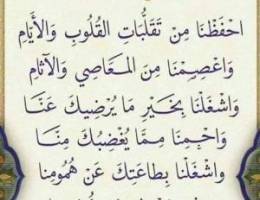 احْفَظْنَا مِنْ تَقَلُّبَاتِ القُلُوبِ وَالأَيَّامِ
وَاعْصِمْنَا مِنَ المَعَاصِي وَالآثَامِ
وَاشْغَلْنَا بِخَيْرِ مَا يُرْضِيكَ عَنَّا
وَاحْمِنَا مِمَّا يُغْضِبُكَ مِنَّا
وَاشْغَلْنَا بِطَاعَتِكَ عَنْ هُمُومِنَا